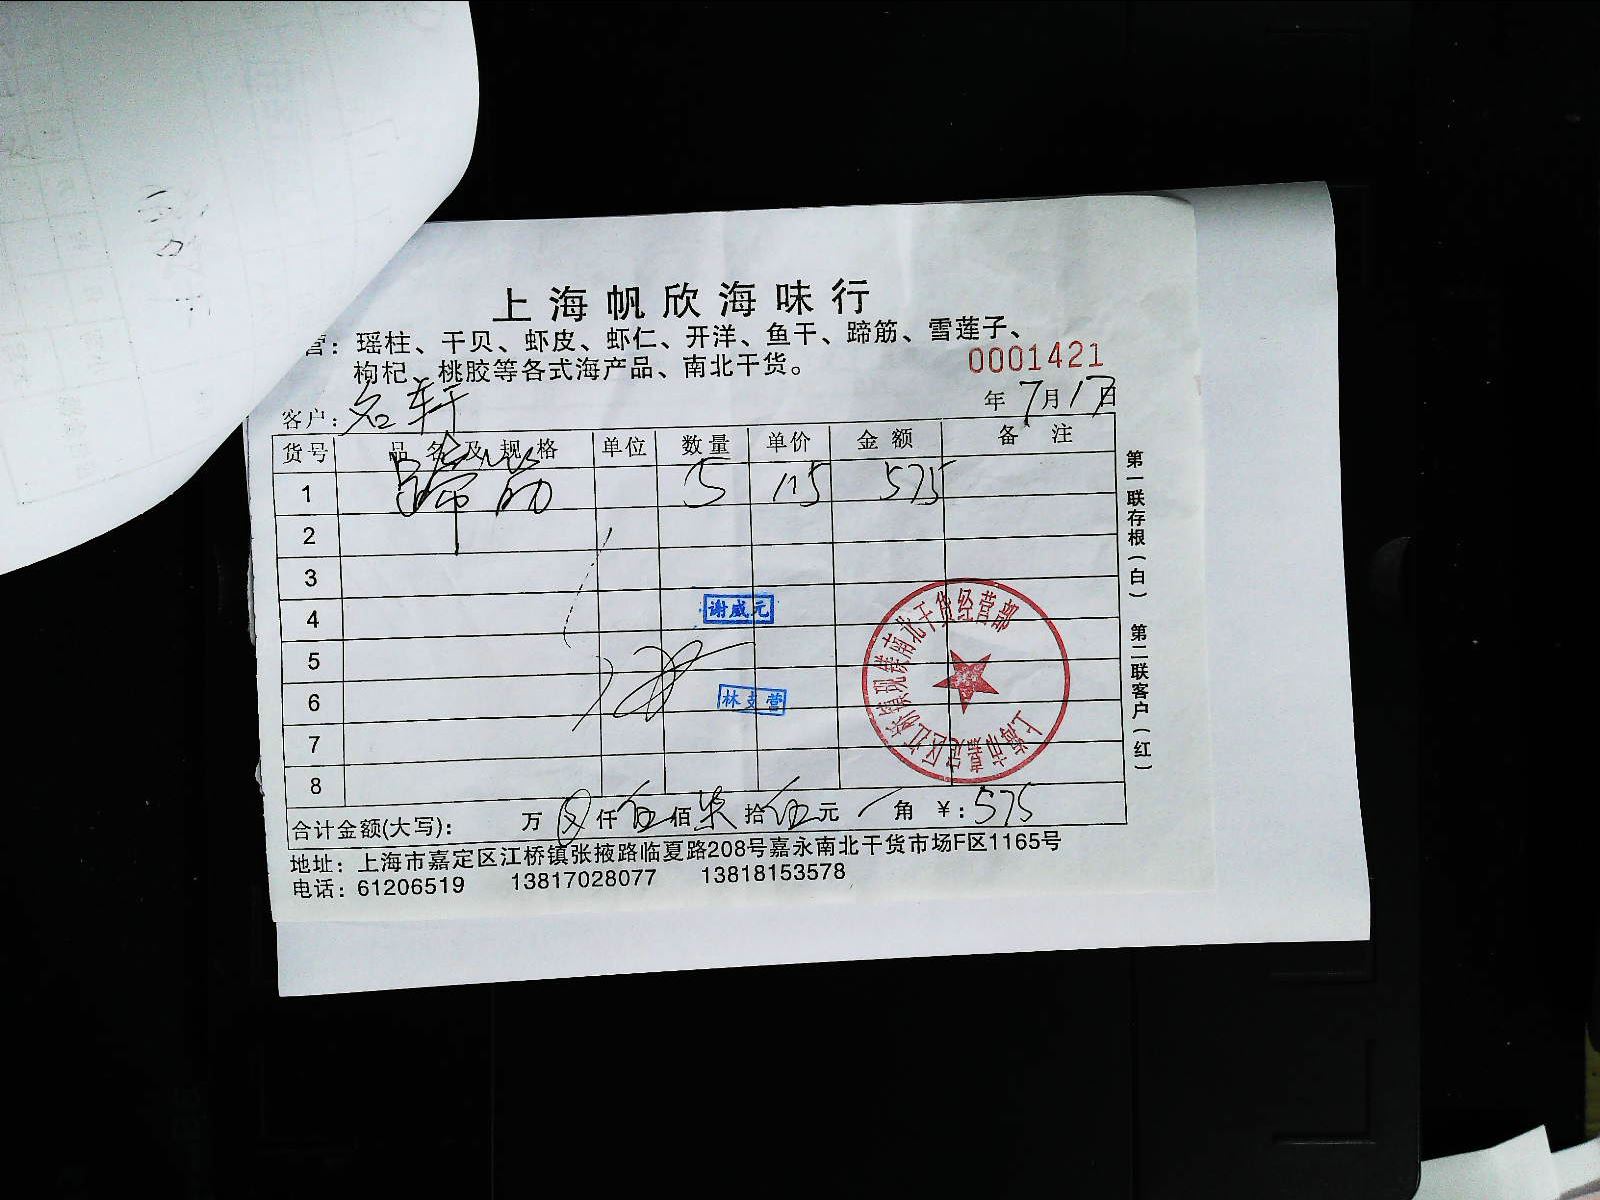 上海帆欣海味行
营：瑶柱、干贝、虾皮、虾仁、开洋、鱼干、蹄筋、雪莲子、
枸杞、桃胶等各式海产品、南北干货。
0001421
客户：名轩
年 7月17日
货号 品名及规格 单位 数量 单价 金额 备注
1 蹄筋 5 115 575
2
3
4
谢威元
5
6
林支营
7
8
合计金额(大写)： 万 仟伍佰柒拾伍元 角 ¥：575
地址：上海市嘉定区江桥镇张掖路临夏路208号嘉永南北干货市场F区1165号
电话：61206519 13817028077 13818153578
第一联存根（白） 第二联客户（红）
上海市嘉定区江桥镇现镁南北干货经营部